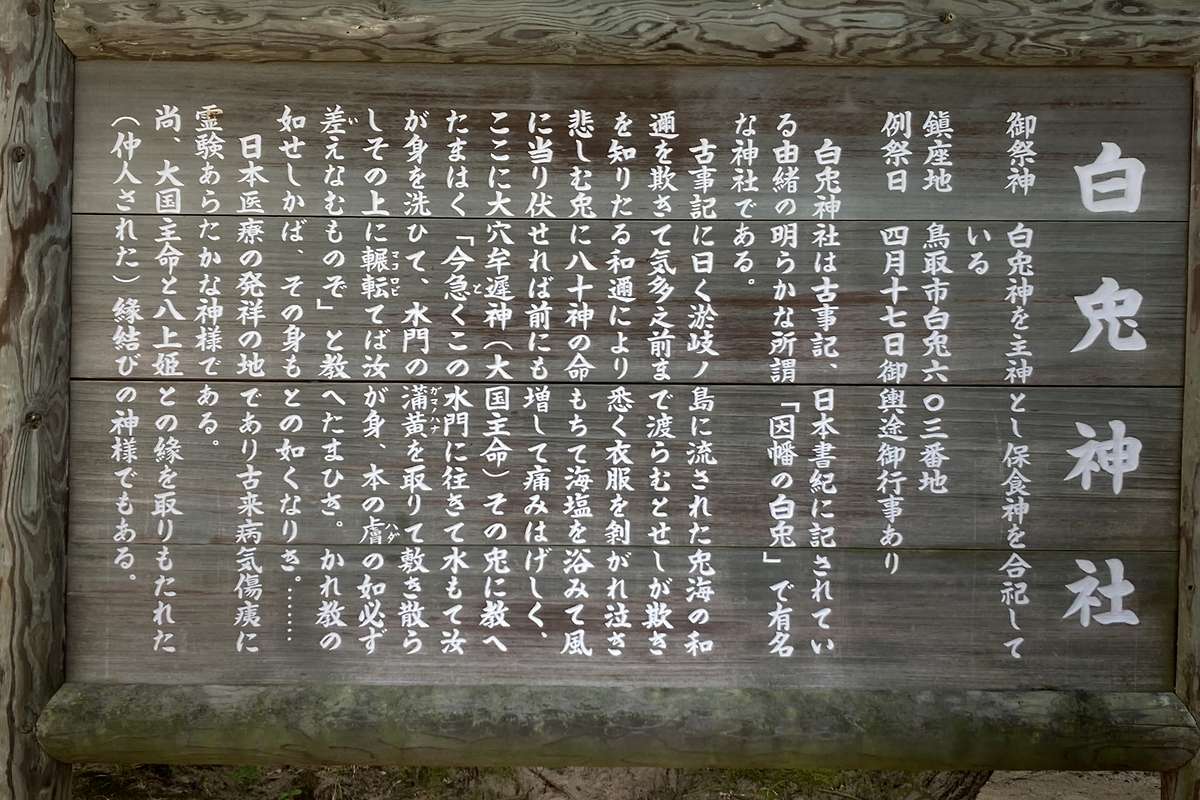 白兎神社
御祭神　白兎神を主神とし保食神を合祀して
いる
鎮座地　鳥取市白兎六〇三番地
例祭日　四月十七日御輿途御行事あり
白兎神社は古事記、日本書紀に記されてい
る由緒の明らかな所謂「因幡の白兎」で有名
な神社である。
古事記に曰く淤岐ノ島に流された兎海の和
邇を欺きて気多之前まで渡らむとせしが欺き
を知りたる和邇により悉く衣服を剝がれ泣き
悲しむ兎に八十神の命もちて海塩を浴みて風
に当り伏せれば前にも増して痛みはげしく、
ここに大穴牟遅神（大国主命）その兎に教へ
たまはく「今急くこの水門に往きて水もて汝
が身を洗ひて、水門の蒲黄を取りて敷き散ら
しその上に輾転てば汝が身、本の膚の如必ず
差えなむものぞ」と教へたまひき。かれ教の
如せしかば、その身もとの如くなりき。……
日本医療の発祥の地であり古来病気傷痍に
霊験あらたかな神様である。
尚、大国主命と八上姫との縁を取りもたれた
（仲人された）縁結びの神様でもある。